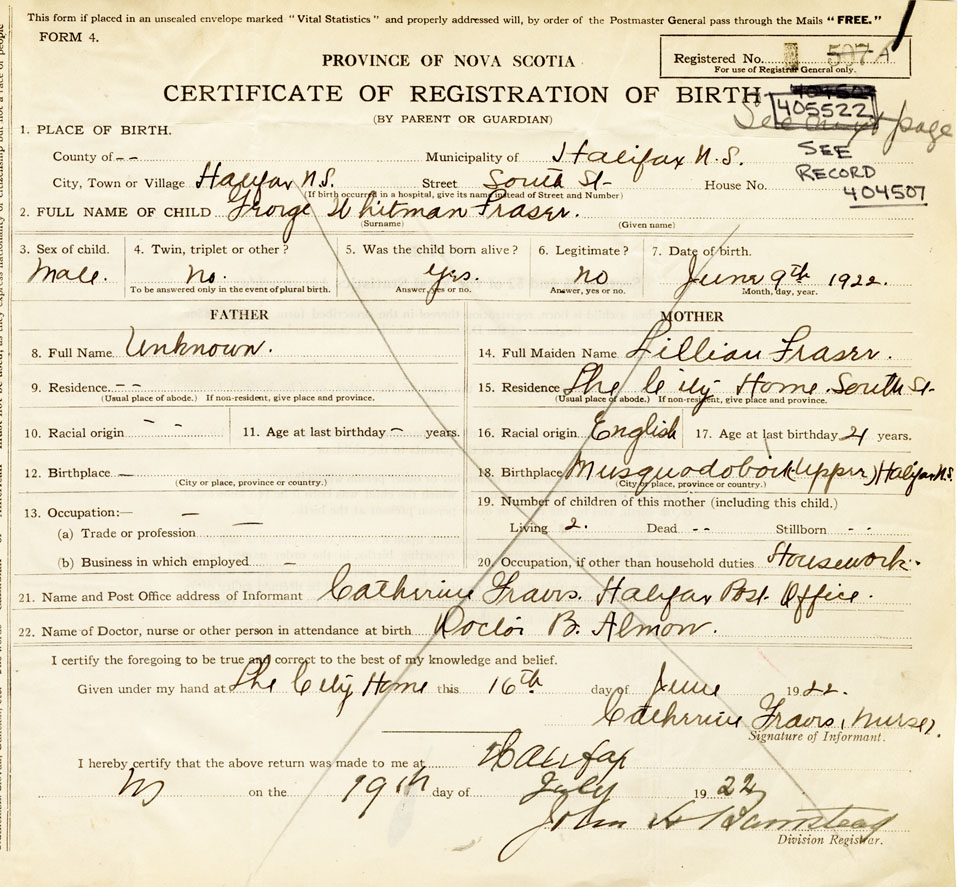 This form if placed in an unsealed envelope marked "Vital Statistics" and properly addressed will, by order of the Postmaster General pass through the Mails "FREE."
FORM 4.
PROVINCE OF NOVA SCOTIA
Registered No. 507 A
For use of Registrar General only.
CERTIFICATE OF REGISTRATION OF BIRTH
(BY PARENT OR GUARDIAN)
405522
See page
SEE
RECORD
404507
1. PLACE OF BIRTH.
County of -- Municipality of Halifax N.S.
City, Town or Village Halifax N.S. Street South St- House No.
(If birth occurred in a hospital, give its name instead of Street and Number)
2. FULL NAME OF CHILD George Whitman Fraser.
(Surname) (Given name)
3. Sex of child. 4. Twin, triplet or other? 5. Was the child born alive? 6. Legitimate? 7. Date of birth.
Male. No. Yes. No June 9th 1922.
To be answered only in the event of plural birth. Answer, yes or no. Answer, yes or no. Month, day, year.
FATHER
8. Full Name Unknown.
9. Residence --
(Usual place of abode.) If non-resident, give place and province.
10. Racial origin - - 11. Age at last birthday - years.
12. Birthplace —
(City or place, province or country.)
13. Occupation:— —
(a) Trade or profession —
(b) Business in which employed —
MOTHER
14. Full Maiden Name Lillian Fraser.
15. Residence The City Home. South St-
(Usual place of abode.) If non-resident, give place and province.
16. Racial origin English 17. Age at last birthday 21 years.
18. Birthplace Musquodoboit (Upper) Halifax N.S.
(City or place, province or country.)
19. Number of children of this mother (including this child.)
Living 2. Dead -- Stillborn - -
20. Occupation, if other than household duties Housework.
21. Name and Post Office address of Informant Catherine Travis. Halifax Post. Office.
22. Name of Doctor, nurse or other person in attendance at birth Doctor B. Almon.
I certify the foregoing to be true and correct to the best of my knowledge and belief.
Given under my hand at The City Home this 16th day of June 1922.
Catherine Travis, Nurse.
Signature of Informant.
I hereby certify that the above return was made to me at Halifax
NS on the 19th day of July 1922
John H Barnstead
Division Registrar.